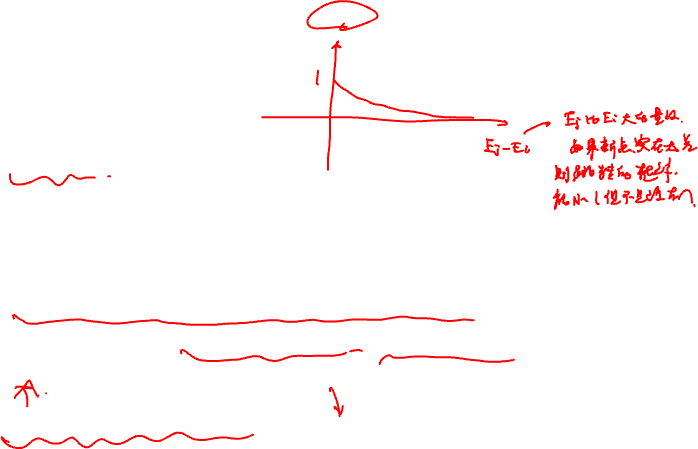 1
Ej-Ei
Ej比Ei大的量级.
如果新点实在太差
则跳转的概率.
能小 但不是没有